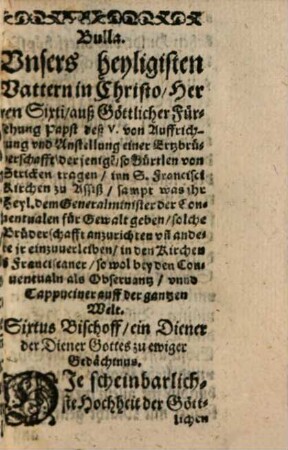 Bulla.
Vnsers heyligisten
Vattern in Christo/ Her
ren Sixti/ auß Göttlicher Für
ehung Papst deß V. von Auffrich-
ung vnd Anstellung einer Ertzbrü-
erschafft/ der jenigē/ so Gürtlen von
Stricken tragen/ inn S. Francisci
Kirchen zu Assiß/ sampt was ihr
Heyl. dem Generalminister der Con-
uentualen für Gewalt geben/ solche
Brüderschafft anzurichten vñ ande-
te jr einzuuerleiben/ in den Kirchen
s Franciscaner/ so wol bey den Con-
uentualn als Obseruantz/ vnnd
Cappuciner auff der gantzen
Welt.
Sixtus Bischoff/ ein Diener
der Diener Gottes zu ewiger
Gedächtnus.
DJe scheinbarlich-
ste Hochheit der Gött-
lichen